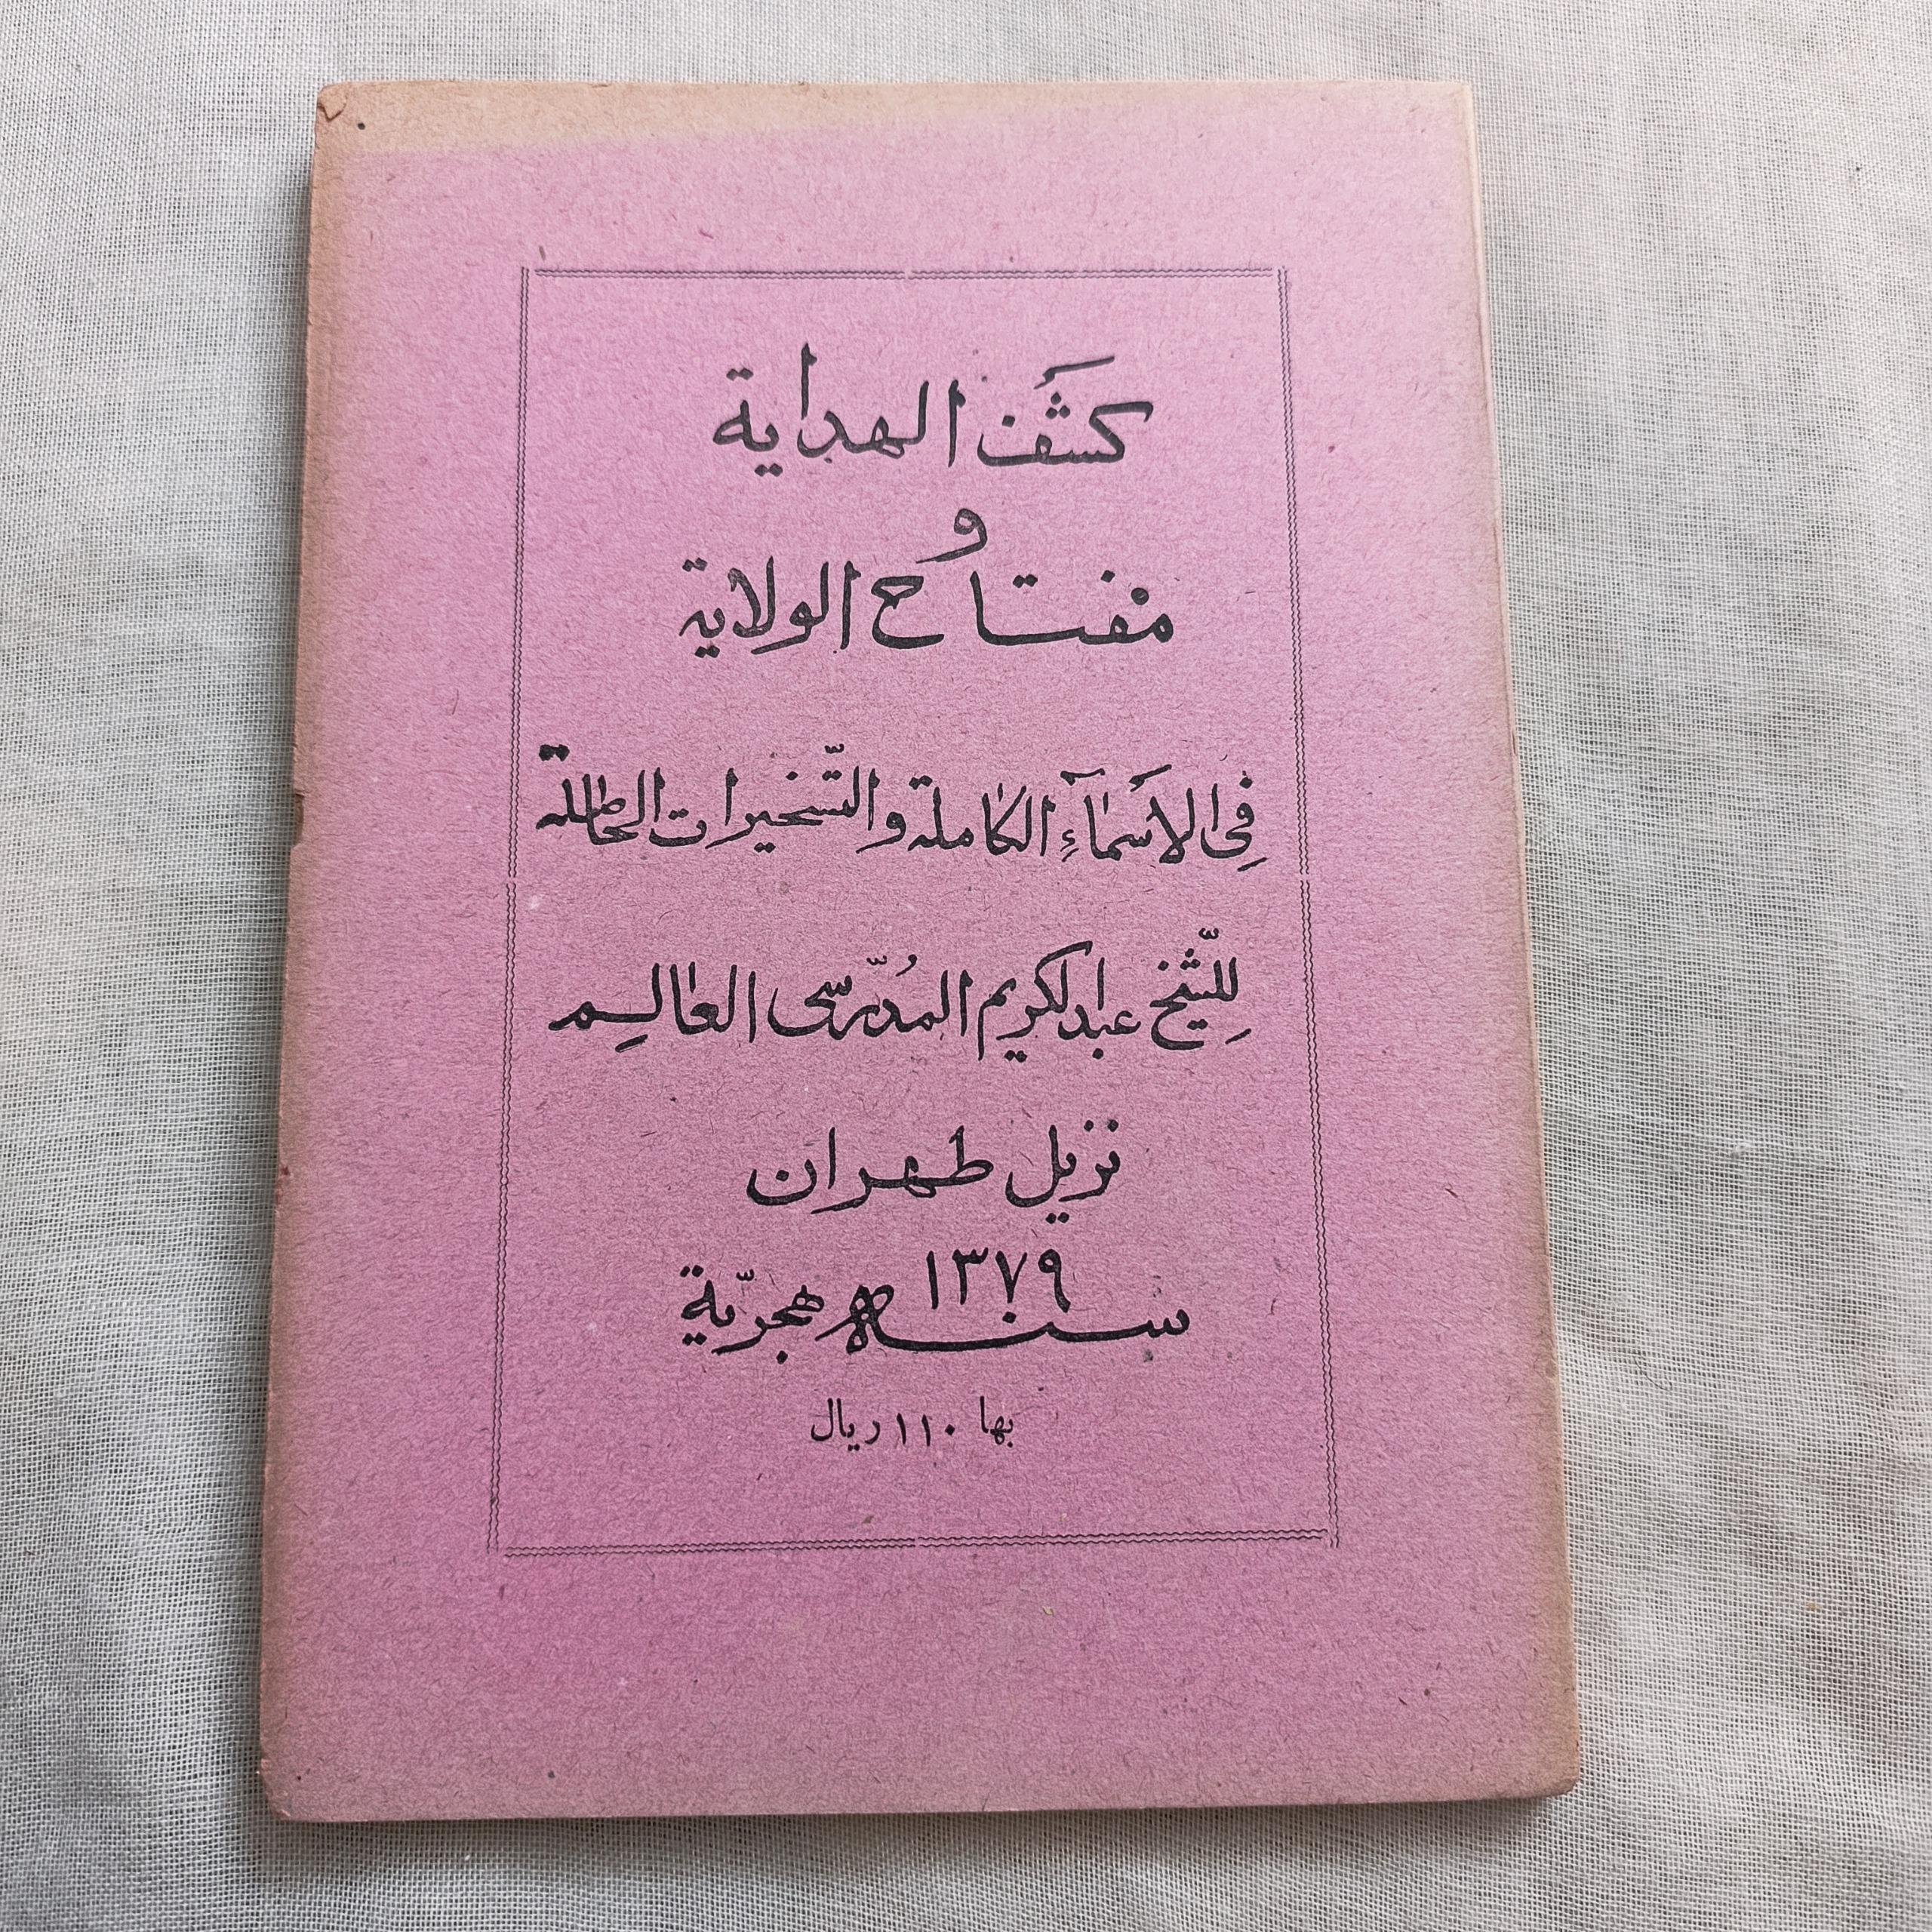 كشف الهداية
و
مفتاح الولاية
في الاسمآء الكاملة والتّسخيرات
للشّيخ عبدالكريم المُدرّسى العالم
نزيل طهران
سنه ١٣٧٩ هجريّة
بها ١١٠ ريال